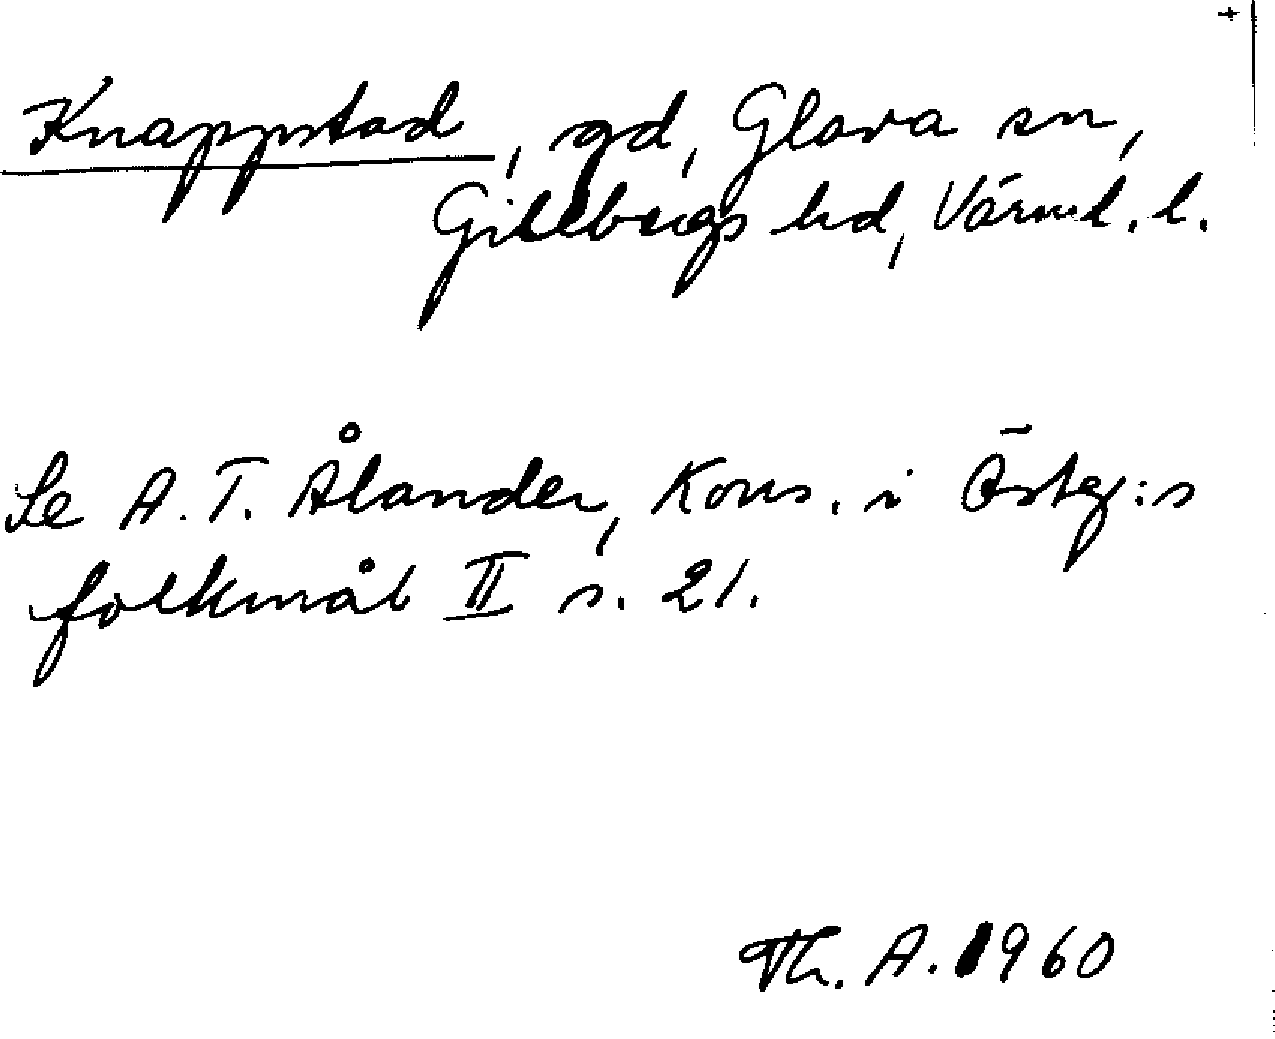 Knappstad, gd, Glava sn,
Gillbergs hd, Värml. l.
Se A. T. Ålander, Kons. i Östg:s
folkmål II s. 21.
Th. A. 1960